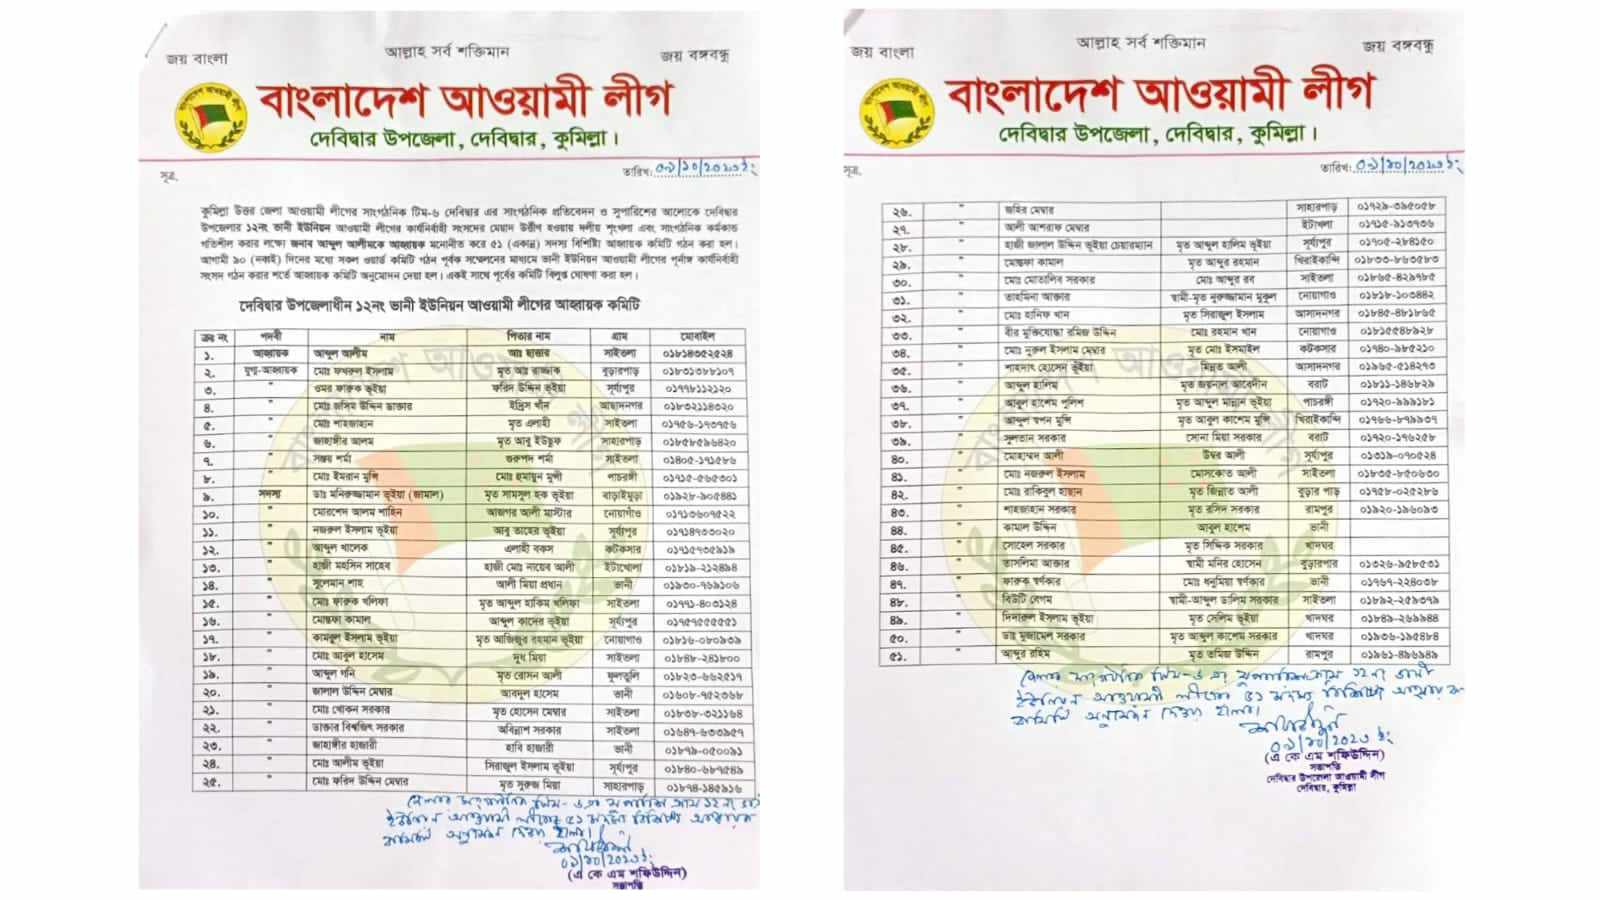 জয় বাংলা
আল্লাহ সর্ব শক্তিমান
জয় বঙ্গবন্ধু
বাংলাদেশ আওয়ামী লীগ
দেবিদ্বার উপজেলা, দেবিদ্বার, কুমিল্লা।
সূত্র.
তারিখ: ০৯/১০/২০২৩ইং
কুমিল্লা উত্তর জেলা আওয়ামী লীগের সাংগঠনিক টিম-৬ দেবিদ্বার এর সাংগঠনিক প্রতিবেদন ও সুপারিশের আলোকে দেবিদ্বার
উপজেলার ১২নং ভানী ইউনিয়ন আওয়ামী লীগের কার্যনির্বাহী সংসদের মেয়াদ উর্ত্তীণ হওয়ায় দলীয় শৃংখলা এবং সাংগঠনিক কর্মকান্ড
গতিশীল করার লক্ষ্যে জনাব আব্দুল আলীমকে আহ্বায়ক মনোনীত করে ৫১ (একান্ন) সদস্য বিশিষ্টা আহবায়ক কমিটি গঠন করা হল।
আগামী ৯০ (নব্বই) দিনের মধ্যে সকল ওয়ার্ড কমিটি গঠন পূর্বক সম্মেলনের মাধ্যমে ভানী ইউনিয়ন আওয়ামী লীগের পূর্নাঙ্গ কার্যনির্বাহী
সংসদ গঠন করার শর্তে আহবায়ক কমিটি অনুমোদন দেয়া হল। একই সাথে পূর্বের কমিটি বিলুপ্ত ঘোষণা করা হল।
দেবিদ্বার উপজেলাধীন ১২নং ভানী ইউনিয়ন আওয়ামী লীগের আহ্বায়ক কমিটি
ক্রঃ নং পদবী নাম পিতার নাম গ্রাম মোবাইল
১. আহ্বায়ক আব্দুল আলীম আঃ ছাত্তার সাইতলা ০১৮১৪৩৫২৫২৪
২. যুগ্ম-আহ্বায়ক মোঃ ফখরুল ইসলাম মৃত আঃ রাজ্জাক বুড়ারপাড় ০১৮৩১৩৮৮১০৭
৩. " ওমর ফারুক ভূইয়া ফরিদ উদ্দিন ভূইয়া সূর্যপুর ০১৭৭৮১১২১২০
৪. " মোঃ জসিম উদ্দিন ডাক্তার ইদ্রিস খাঁন আছাদনগর ০১৮৩২১১৪৩২০
৫. " মোঃ শাহজাহান মৃত এলাহী সাইতলা ০১৭৫৬-১৭৩৭৫৬
৬. " জাহাঙ্গীর আলম মৃত আবু ইউছুফ সাহারপাড় ০১৮৫৮৫৯৬৪২০
৭. " সঞ্জয় শর্মা গুরুপদ শর্মা সাইতলা ০১৪০৫-১৭১৫৮৬
৮. " মোঃ ইমরান মুন্সি মোঃ হুমায়ুন মুন্সী পাচরঙ্গী ০১৭১৫-৫৬৫৩০১
৯. সদস্য ডাঃ মনিরুজ্জামান ভূইয়া (জামাল) মৃত সামসুল হক ভূইয়া বাড়াইমুড়া ০১৯২৮-৯০৫৪৪১
১০. " মোরশেদ আলম শাহিন আজগর আলী মাস্টার নোয়াগাঁও ০১৭১৩৬০৭৫২২
১১. " নজরুল ইসলাম ভূইয়া আবু তাহের ভূইয়া সূর্যপুর ০১৭১৪৭৩৩০২০
১২. " আব্দুল খালেক এলাহী বকস কটকসার ০১৭১৫৭৩৫৯১৯
১৩. " হাজী মহসিন সাহেব হাজী মোঃ নায়েব আলী ইটাখোলা ০১৮১৯-২১২৪৯৪
১৪. " সুলেমান শাহ আলী মিয়া প্রধান ভানী ০১৯৩০-৭৬৯১০৬
১৫. " মোঃ ফারুক খলিফা মৃত আব্দুল হাকিম খলিফা সাইতলা ০১৭৭১-৪০৩১২৪
১৬. " মোস্তফা কামাল আব্দুল কাদের ভূইয়া সূর্যপুর ০১৭৫৭৫৫৫৫৫১
১৭. " কামরুল ইসলাম ভূইয়া মৃত আজিজুর রহমান ভূইয়া নোয়াগাও ০১৮১৬-০৮০৯৩৯
১৮. " মোঃ আবুল হাসেম দুধ মিয়া সাইতলা ০১৮৪৮-২৪১৮০০
১৯. " আব্দুল গনি মৃত রোসন আলী ফুলতুলি ০১৮২৩-৬৬২৫১৭
২০. " জালাল উদ্দিন মেম্বার আবদুল হাসেম ভানী ০১৬০৮-৭৫২৩৬৮
২১. " মোঃ খোকন সরকার মৃত হোসেন মেম্বার সাইতলা ০১৮৩৮-৩২১১৬৪
২২. " ডাক্তার বিশ্বজিৎ সরকার অবিন্নাশ সরকার সাইতলা ০১৬৪৭-৬৩৩৯৫৭
২৩. " জাহাঙ্গীর হাজারী হাবি হাজারী ভানী ০১৮৭৯-০৫০০৯১
২৪. " মোঃ আলীম ভূইয়া সিরাজুল ইসলাম ভূইয়া সূর্যপুর ০১৮৪০-৬৮৭৫৪৯
২৫. " মোঃ ফরিদ উদ্দিন মেম্বার মৃত সুরুজ মিয়া সাহারপাড় ০১৮৭৪-১৪৫৯১৬
ইউনিয়ন আওয়ামী লীগের ৫১ সদস্য বিশিষ্ট আহবায়ক
কমিটি অনুমোদন দেওয়া হলো।
০৯/১০/২০২৩ইং
(এ কে এম শফিউদ্দিন)
সভাপতি
জয় বাংলা
আল্লাহ সর্ব শক্তিমান
জয় বঙ্গবন্ধু
বাংলাদেশ আওয়ামী লীগ
দেবিদ্বার উপজেলা, দেবিদ্বার, কুমিল্লা।
সূত্র.
তারিখ: ০৯/১০/২০২৩ইং
২৬. " জহির মেম্বার সাহারপাড় ০১৭২৯-৩৯৫০৫৮
২৭. " আলী আশরাফ মেম্বার ইটাখলা ০১৭১৫-৯১৩৭৩৬
২৮. " হাজী জালাল উদ্দিন ভূইয়া চেয়ারম্যান মৃত আব্দুল হালিম ভূইয়া সূর্যপুর ০১৭০৫-২৮৪১৫০
২৯. " মোস্তফা কামাল মৃত আব্দুর রহমান খিরাইকান্দি ০১৮৩৩-৮৬৩৫৮৩
৩০. " মোঃ মোতালিব সরকার মোঃ আব্দুর রব সাইতলা ০১৮৬৫-৪২৯৭৮৫
৩১. " তাহমিনা আক্তার স্বামী-মৃত নুরুজ্জামান মুকুল নোয়াগাও ০১৮১৮-১০৩৪৪২
৩২. " মোঃ হানিফ খান মৃত সিরাজুল ইসলাম আসাদনগর ০১৮৪৫-৪৮১৮৬৫
৩৩. " বীর মুক্তিযোদ্ধা রমিজ উদ্দিন মোঃ রহমান খান নোয়াগাও ০১৮১৫৫৪৮৯২৮
৩৪. " মোঃ নুরুল ইসলাম মেম্বার মৃত মোঃ ইসমাইল কটকসার ০১৭৪০-৯৮৫২১০
৩৫. " শাহদাৎ হোসেন ভূইয়া মিন্নত আলী আসাদনগর ০১৯৬৫-৫১৪২৭৩
৩৬. " আব্দুল হালিম মৃত জয়নাল আবেদীন বরাট ০১৮১১-১৪৬৮২৯
৩৭. " আবুল হাশেম পুলিশ মৃত আব্দুল মান্নান ভূইয়া পাচরঙ্গী ০১৭২০-৯৯৯১৮১
৩৮. " আব্দুল স্বপন মুন্সি মৃত আবুল কাশেম মুন্সি খিরাইকান্দি ০১৭৬৬-৮৭৯৯৩৭
৩৯. " সুলতান সরকার সোনা মিয়া সরকার বরাট ০১৭২০-১৭৬২৫৮
৪০. " মোহাম্মদ আলী উম্বর আলী সূর্যপুর ০১৩১৯-০৭০৫২৪
৪১. " মোঃ নজরুল ইসলাম মোসকোত আলী সাইতলা ০১৮৩৫-৮৫০৬৩০
৪২. " মোঃ রাকিবুল হাছান মৃত জিন্নাত আলী বুড়ার পাড় ০১৭৫৮-০২৫২৮৬
৪৩. " শাহজাহান সরকার মৃত রসিদ সরকার রামপুর ০১৯২০-১৯৬০৯৩
৪৪. " কামাল উদ্দিন আবুল হাশেম ভানী
৪৫. " সোহেল সরকার মৃত সিদ্দিক সরকার খাদঘর
৪৬. " তাসলিমা আক্তার স্বামী মনির হোসেন বুড়ারপার ০১৩২৬-৯৫৮৫৩১
৪৭. " ফারুক স্বর্ণকার মোঃ ধনুমিয়া স্বর্ণকার ভানী ০১৭৬৭-২২৪০৩৮
৪৮. " বিউটি বেগম স্বামী-আব্দুল ডালিম সরকার সাইতলা ০১৮৯২-২৫৯৩৭৯
৪৯. " দিদারুল ইসলাম ভূইয়া মৃত সেলিম ভূইয়া খাদঘর ০১৮৪৯-২৬৯৯৪৪
৫০. " ডাঃ মুজামেল সরকার মৃত আব্দুল কাশেম সরকার খাদঘর ০১৯৩৬-১৯৫৪৮৪
৫১. " আব্দুর রহিম মৃত তমিজ উদ্দিন রামপুর ০১৯৬১-৪৯৬৯৪৯
ইউনিয়ন আওয়ামী লীগের ৫১ সদস্য বিশিষ্ট আহবায়ক
কমিটি অনুমোদন দেওয়া হলো।
০৯/১০/২০২৩ ইং
(এ কে এম শফিউদ্দিন)
সভাপতি
দেবিদ্বার উপজেলা আওয়ামী লীগ
দেবিদ্বার, কুমিল্লা